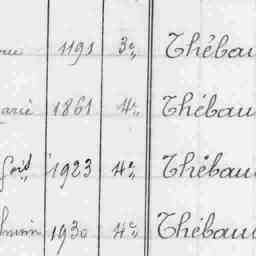 1191 3e Thébau
arie 1861 4e Thébau
1923 4e Thébau
1930 4e Thébau